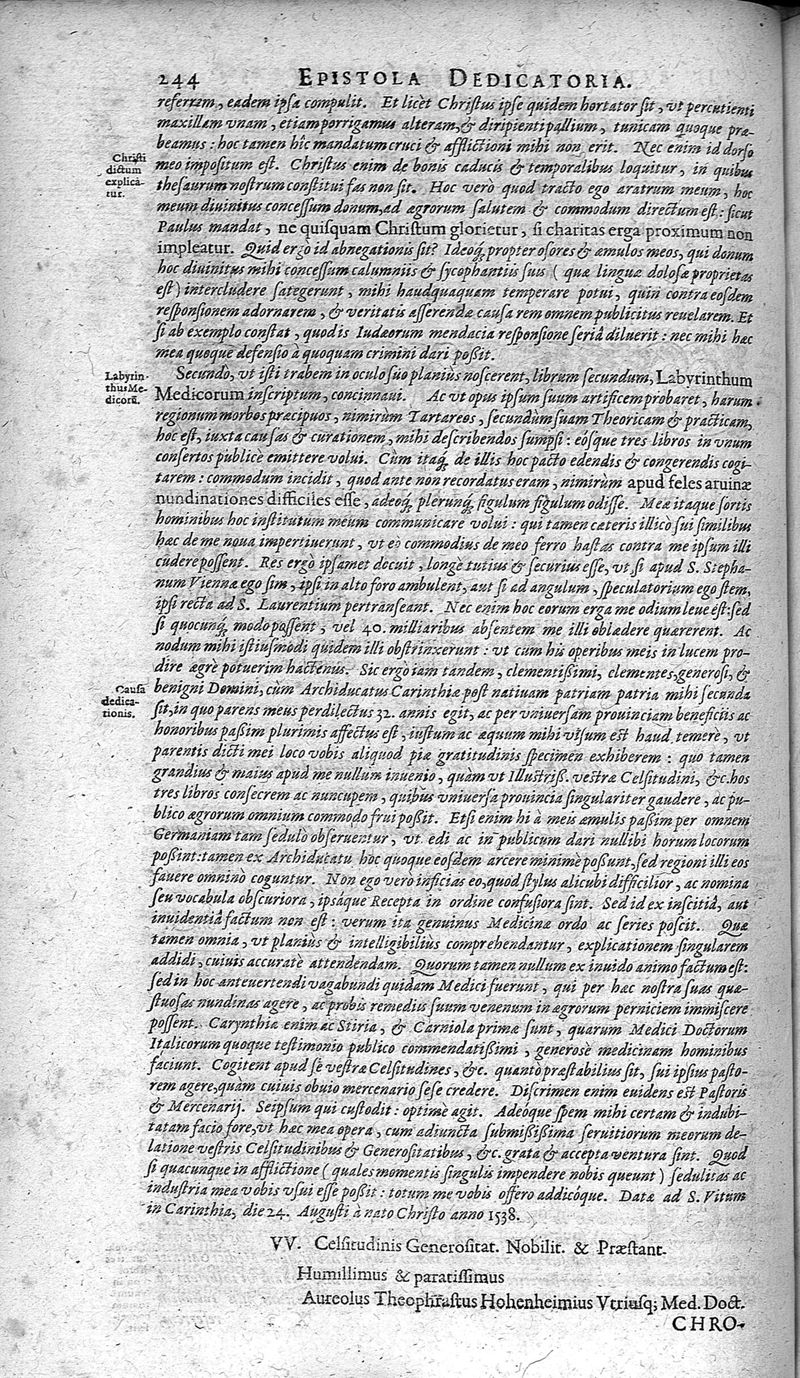 244 EPISTOLA DEDICATORIA.
referrem, eadem ipsa compulit. Et licèt Christus ipse quidem hortator sit, vt percutienti
maxillam vnam, etiam porrigamus alteram, & diripienti pallium, tunicam quoque præ-
beamus: hoc tamen hîc mandatum cruci & afflictioni mihi non erit. Nec enim id dorso
Christi dictum explicâ-tur.
meo impositum est. Christus enim de bonis caducis & temporalibus loquitur, in quibus
thesaurum nostrum constitui fas non sit. Hoc verò quod tracto ego aratrum meum, hoc
meum diuinitus concessum donum, ad ægrorum salutem & commodum directum est: sicut
Paulus mandat, ne quisquam Christum glorietur, si charitas erga proximum non
impleatur. Quid ergò id abnegationis sit? Ideoq́; propter osores & æmulos meos, qui donum
hoc diuinitus mihi concessum calumniis & sycophantiis suis ( quæ linguæ dolosæ proprietas
est ) intercludere satagerunt, mihi haudquaquam temperare potui, quin contra eosdem
responsionem adornarem, & veritatis asserendæ causa rem omnem publicitus reuelarem. Et
si ab exemplo constat, quod is Iudæorum mendacia responsione seriâ diluerit: nec mihi hæc
mea quoque defensio à quoquam crimini dari poßit.
Labyrin-thus Me-dicorū.
Secundò, vt isti trabem in oculo suo planiùs noscerent, librum secundum, Labyrinthum
Medicorum inscriptum, concinnaui. Ac vt opus ipsum suum artificem probaret, harum
regionum morbos præcipuos, nimirùm Tartareos, secundùm suam Theoricam & practicam,
hoc est, iuxta causas & curationem, mihi describendos sumpsi: eósque tres libros in vnum
consertos publicè emittere volui. Cùm itaq́; de illis hoc pacto edendis & congerendis cogi-
tarem: commodum incidit, quod ante non recordatus eram, nimirùm apud feles aruinæ
nundinationes difficiles esse, adeoq́; plerunq́; figulum figulum odisse. Meæ itaque sortis
hominibus hoc institutum meum communicare volui: qui tamen cæteris illicò sui similibus
hæc de me noua impertiuerunt, vt eò commodius de meo ferro hastas contra me ipsum illi
cudere possent. Res ergò ipsamet docuit, longè tutius & securius esse, vt si apud S. Stepha-
num Viennæ ego sim, ipsi in alto foro ambulent, aut si ad angulum, speculatorium ego stem,
ipsi recta ad S. Laurentium pertranseant. Nec enim hoc eorum erga me odium leue est: sed
si quocunq́; modo possent, vel 40. milliaribus absentem me illi oblædere quærerent. Ac
nodum mihi istiusmodi quidem illi obstrinxerunt: vt cum his operibus meis in lucem pro-
dire ægrè potuerim hactenus. Sic ergo iam tandem, clementißimi, clementes, generosi, &
Causa dedica-tionis.
benigni Domini, cùm Archiducatus Carinthiæ post natiuam patriam patria mihi secunda
sit, in quo parens meus perdilectus 32. annis egit, ac per vniuersam prouinciam beneficiis ac
honoribus paßim plurimis affectus est, iustum ac æquum mihi visum est haud temerè, vt
parentis dicti mei loco vobis aliquod piæ gratitudinis specimen exhiberem: quo tamen
grandius & maius apud me nullum inuenio, quàm vt Illustriß. vestræ Celsitudini, &c. hos
tres libros consecrem ac nuncupem, quibus vniuersa prouincia singulariter gaudere, ac pu-
blico ægrorum omnium commodo frui poßit. Etsi enim hi à meis æmulis paßim per omnem
Germaniam tam sedulò obseruentur, vt edi ac in publicum dari nullibi horum locorum
poßint: tamen ex Archiducatu hoc quoque eosdem arcere minimè poßunt, sed regioni illi eos
fauere omninò coguntur. Non ego verò inficias eo, quod stylus alicubi difficilior, ac nomina
seu vocabula obscuriora, ipsáque Recepta in ordine confusiora sint. Sed id ex inscitiâ, aut
inuidentiâ factum non est: verum ita genuinus Medicinæ ordo ac series poscit. Quæ
tamen omnia, vt planiùs & intelligibiliùs comprehendantur, explicationem singularem
addidi, cuiuis accuratè attendendam. Quorum tamen nullum ex inuido animo factum est:
sed in hoc anteuertendi vagabundi quidam Medici fuerunt, qui per hæc nostra suas quæ-
stuosas nundinas agere, ac probis remediis suum venenum in ægrorum perniciem immiscere
possent. Carynthia enim ac Stiria, & Carniola primæ sunt, quarum Medici Doctorum
Italicorum quoque testimonio publico commendatißimi, generosè medicinam hominibus
faciunt. Cogitent apud sè vestræ Celsitudines, &c. quantò præstabilius sit, sui ipsius pasto-
rem agere, quàm cuiuis obuio mercenario sese credere. Discrimen enim euidens est Pastoris
& Mercenarij. Seipsum qui custodit: optimè agit. Adeóque spem mihi certam & indubi-
tatam facio fore, vt hæc mea opera, cum adiuncta submißißima seruitiorum meorum de-
latione vestris Celsitudinibus & Generositatibus, &c. grata & accepta ventura sint. Quod
si quacunque in afflictione ( quales momentis singulis impendere nobis queunt ) sedulitas ac
industria mea vobis vsui esse poßit: totum me vobis offero addicóque. Datæ ad S. Vitum
in Carinthia, die 24. Augusti à nato Christo anno 1538.
VV. Celsitudinis Generositat. Nobilit. & Præstant.
Humillimus & paratissimus
Aureolus Theophrastus Hohenheimius Vtriusq; Med. Doct.
CHRO-